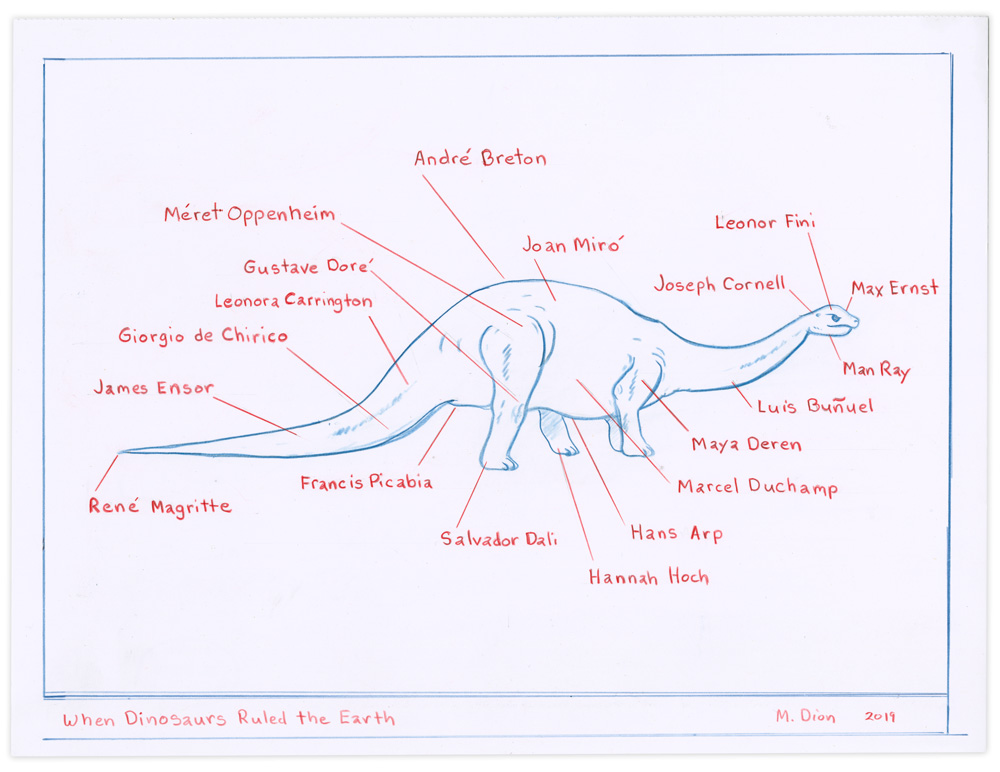 André Breton
Méret Oppenheim
Leonor Fini
Joan Miró
Gustave Doré
Joseph Cornell
Max Ernst
Leonora Carrington
Giorgio de Chirico
Man Ray
James Ensor
Luis Buñuel
Maya Deren
Francis Picabia
Marcel Duchamp
René Magritte
Salvador Dali
Hans Arp
Hannah Hoch
When Dinosaurs Ruled the Earth
M. Dion 2019